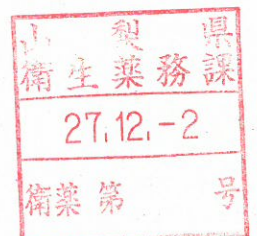 山梨県
衛生薬務課
27.12.-2
衛薬第 号